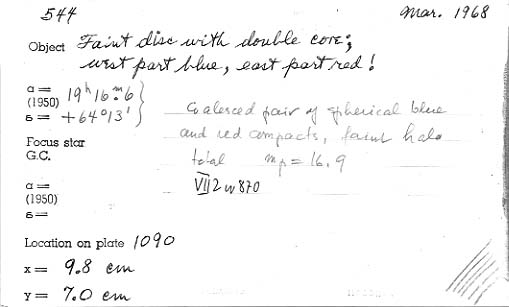 544 Mar. 1968
Object Faint disc with double core;
west part blue, east part red!
α =
(1950) 19ʰ 16ᵐ.6
δ = +64°13'
Coalesced pair of spherical blue
and red compacts, faint halo
total mp = 16.9
VII Zw 870
Focus star
G.C.
α =
(1950)
δ =
Location on plate 1090
x = 9.8 cm
Y = 7.0 cm